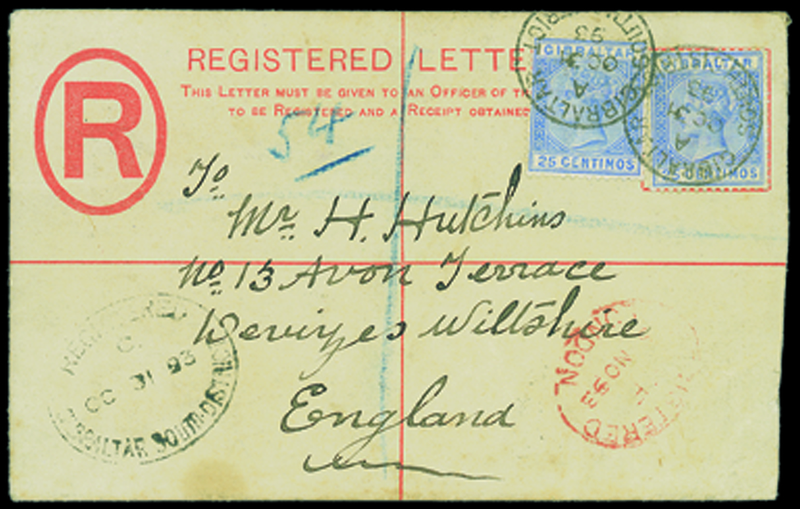 REGISTERED LETTE
THIS LETTER MUST BE GIVEN TO AN OFFICER OF T
TO BE REGISTERED AND A RECEIPT OBTAINED
R
54
GIBRALTAR
25 CENTIMOS
GIBRALTAR
CENTIMOS
GIBRALTAR SOUTH DISTRICT
A
OC 31
93
GIBRALTAR
A
OC 31
93
To
Mr. H. Hutchins
No. 13 Avon Terrace
Devizes Wiltshire
England
REGISTERED
C
OC 31 93
GIBRALTAR SOUTH-DISTRICT
REGISTERED
LONDON
NO 93